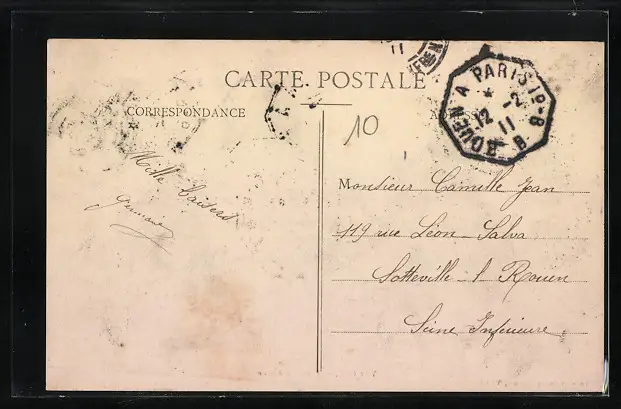 CARTE POSTALE
CORRESPONDANCE
Mille baisers
Germain
10
ROUEN A PARIS 1º
12 -2
11
Monsieur Camille Jean
119 rue Léon Salva
Sotteville-l-Rouen
Seine Inférieure